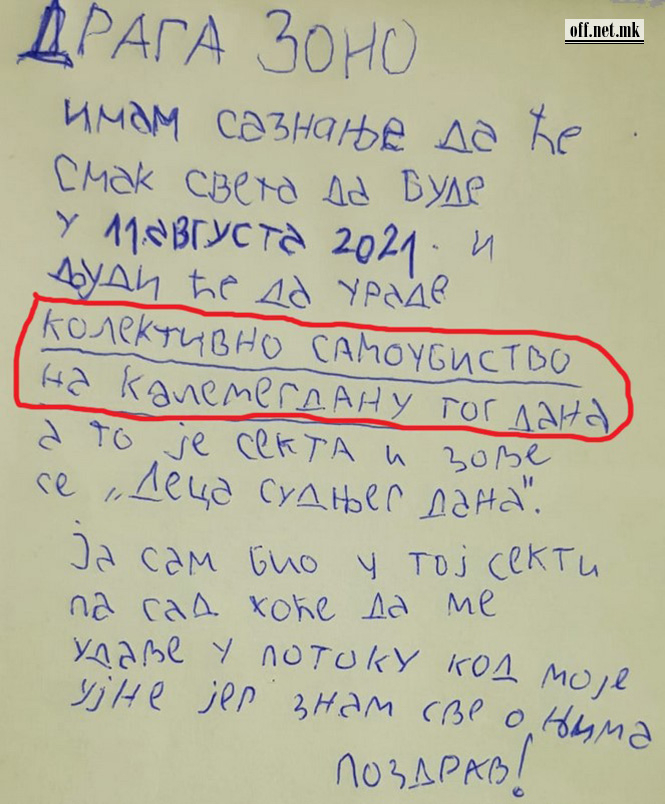 off.net.mk
ДРАГА ЗОНО
имам сазнање да ће
смак света да буде
у 11. августа 2021. и
људи ће да ураде
колективно самоубиство
на калемегдану тог дана
а то је секта и зове
се „Деца судњег дана".
ја сам био у тој секти
па сад хоће да ме
удаве у потоку код моје
ујне јер знам све о њима
ПОЗДРАВ!